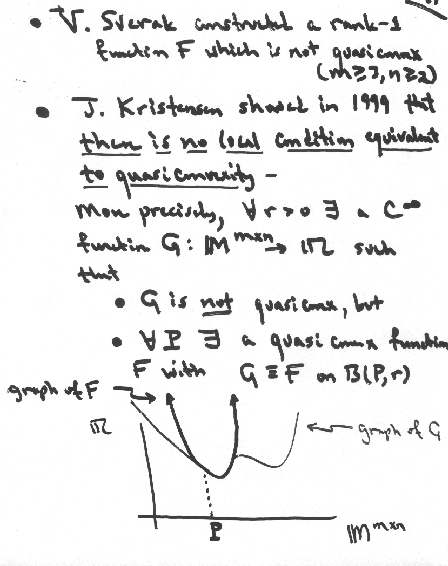 • V. Sverak constructed a rank-1
function F which is not quasiconvex
(m≥3, n≥2)
• J. Kristensen showed in 1999 that
there is no local condition equivalent
to quasiconvexity –
More precisely, ∀ r>0 ∃ a C^∞
function G: 𝕄^{m×n} → ℝ such
that
• G is not quasiconvex, but
• ∀ P ∃ a quasiconvex function
F with G ≡ F on B(P,r)
graph of F
ℝ
graph of G
P
𝕄^{m×n}